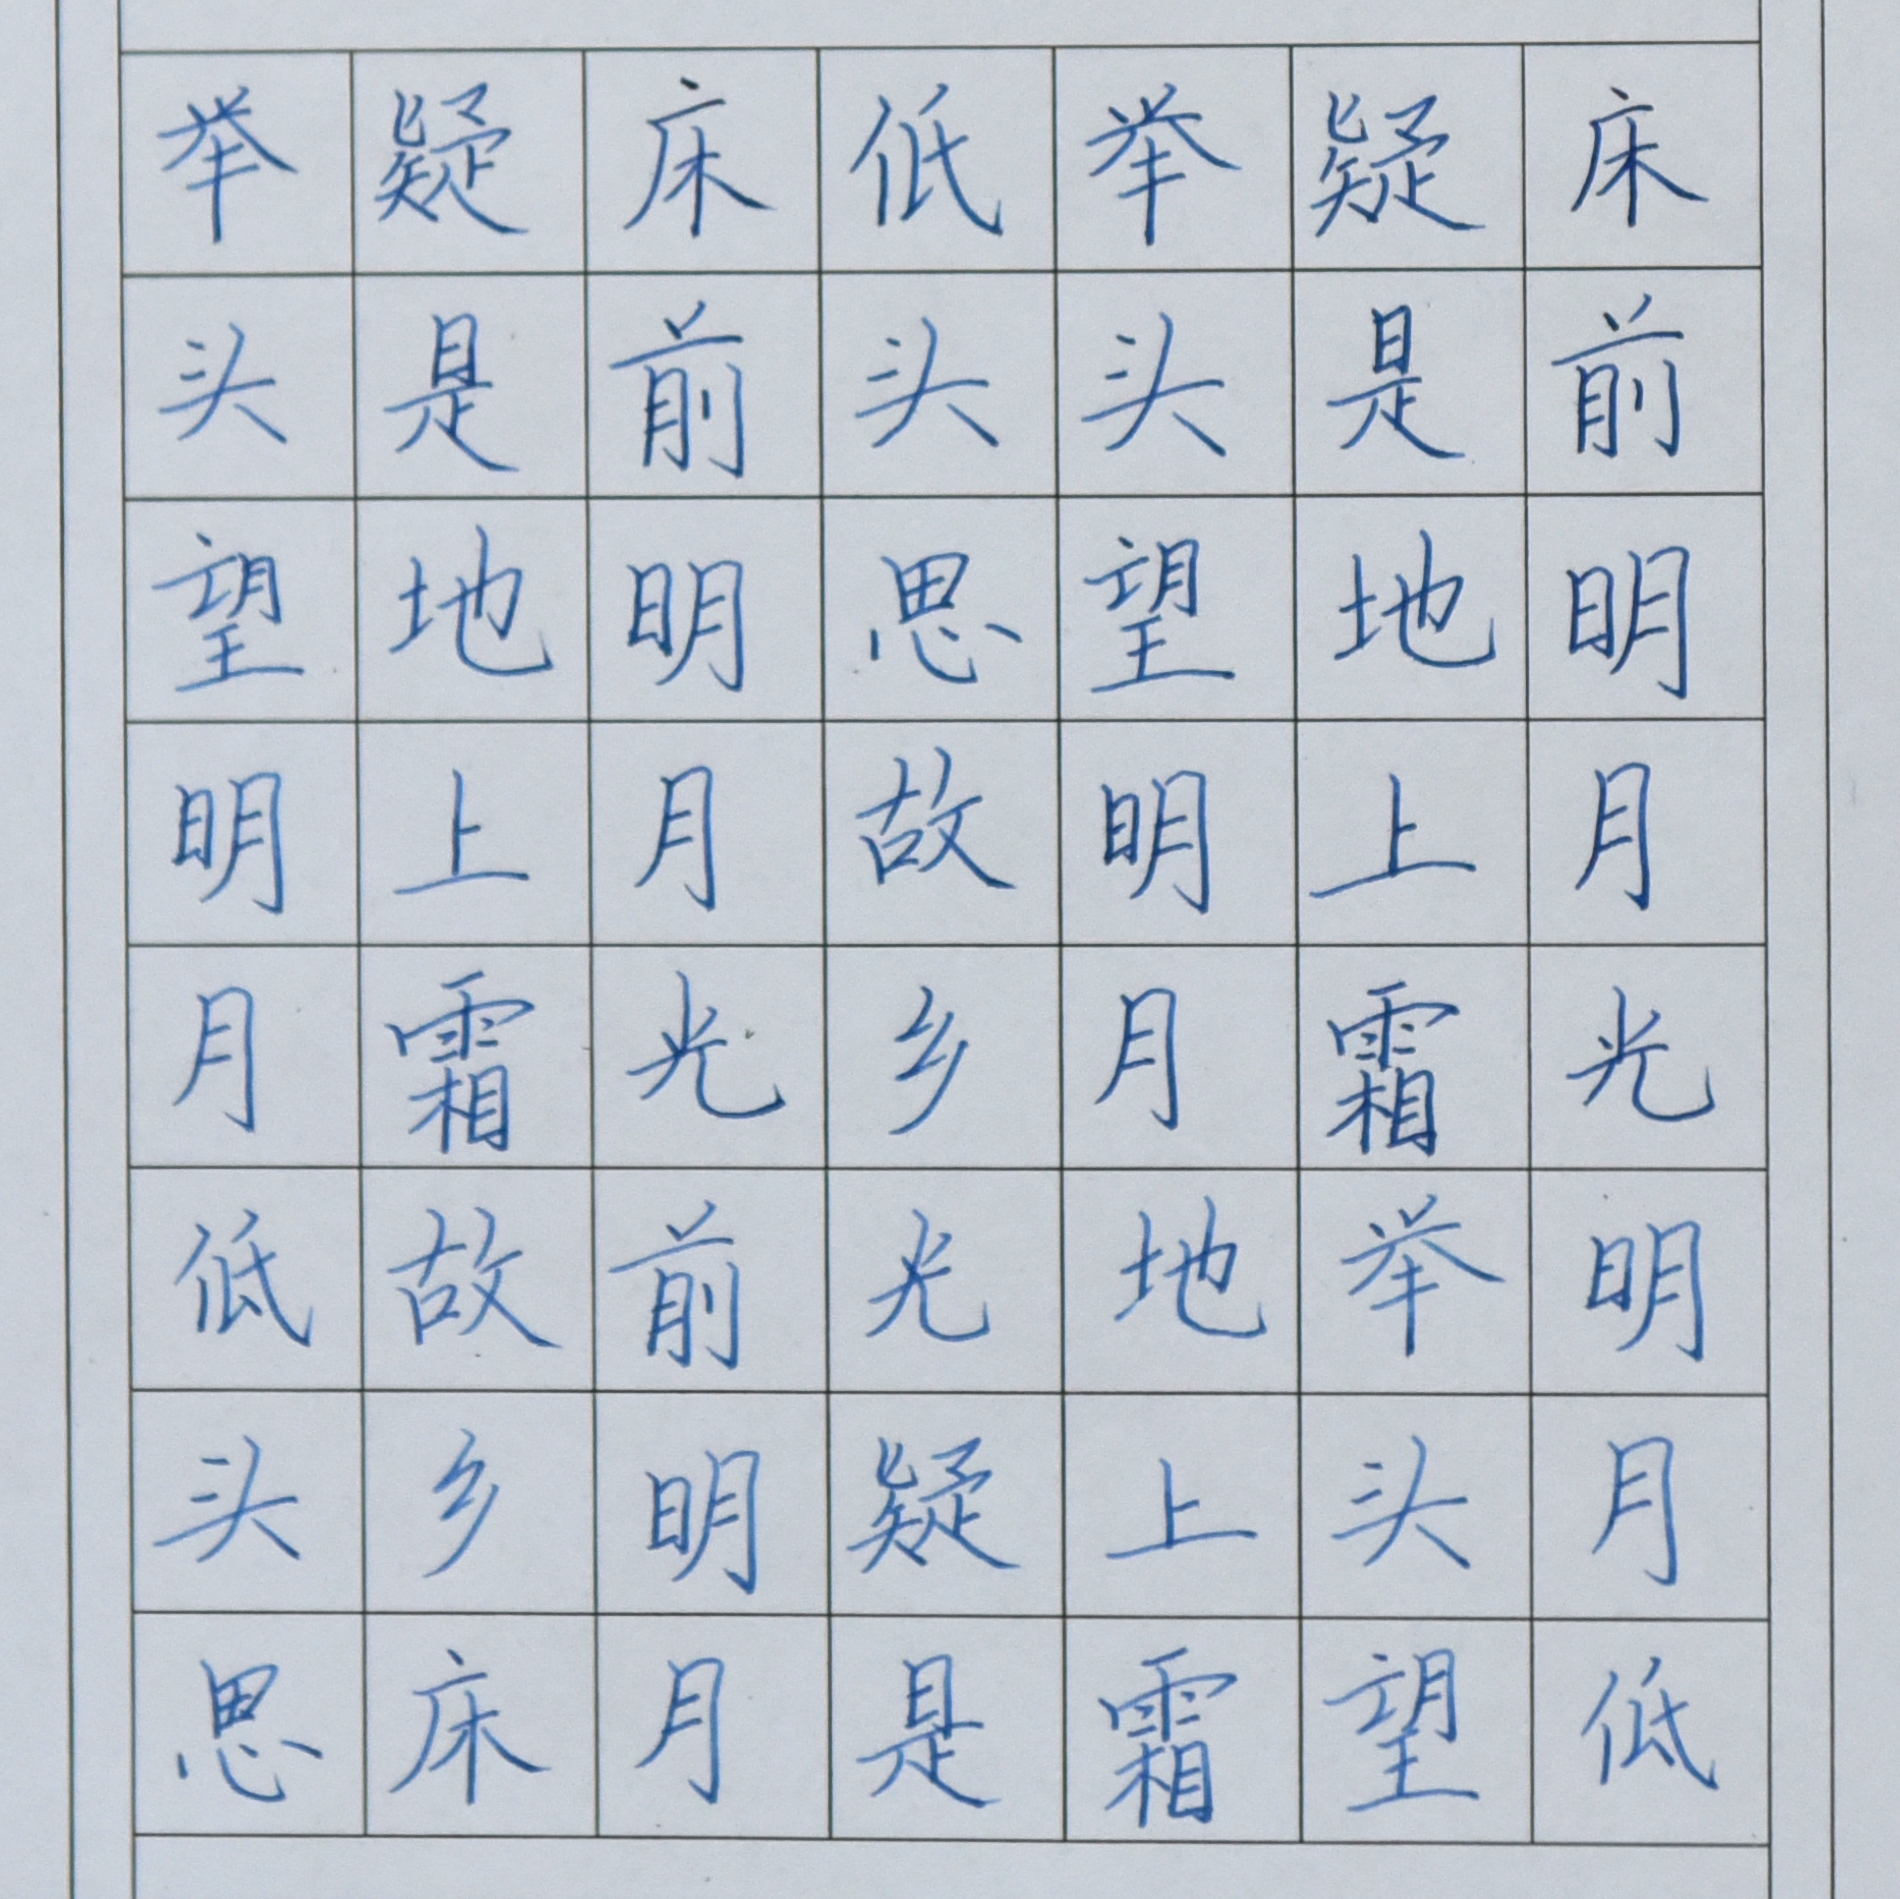 床前明月光
疑是地上霜
举头望明月
低头思故乡
床前明月光
疑是地上霜
举头望明月
低头思
故乡床
前明月
光疑是
地上霜
举头望
明月低